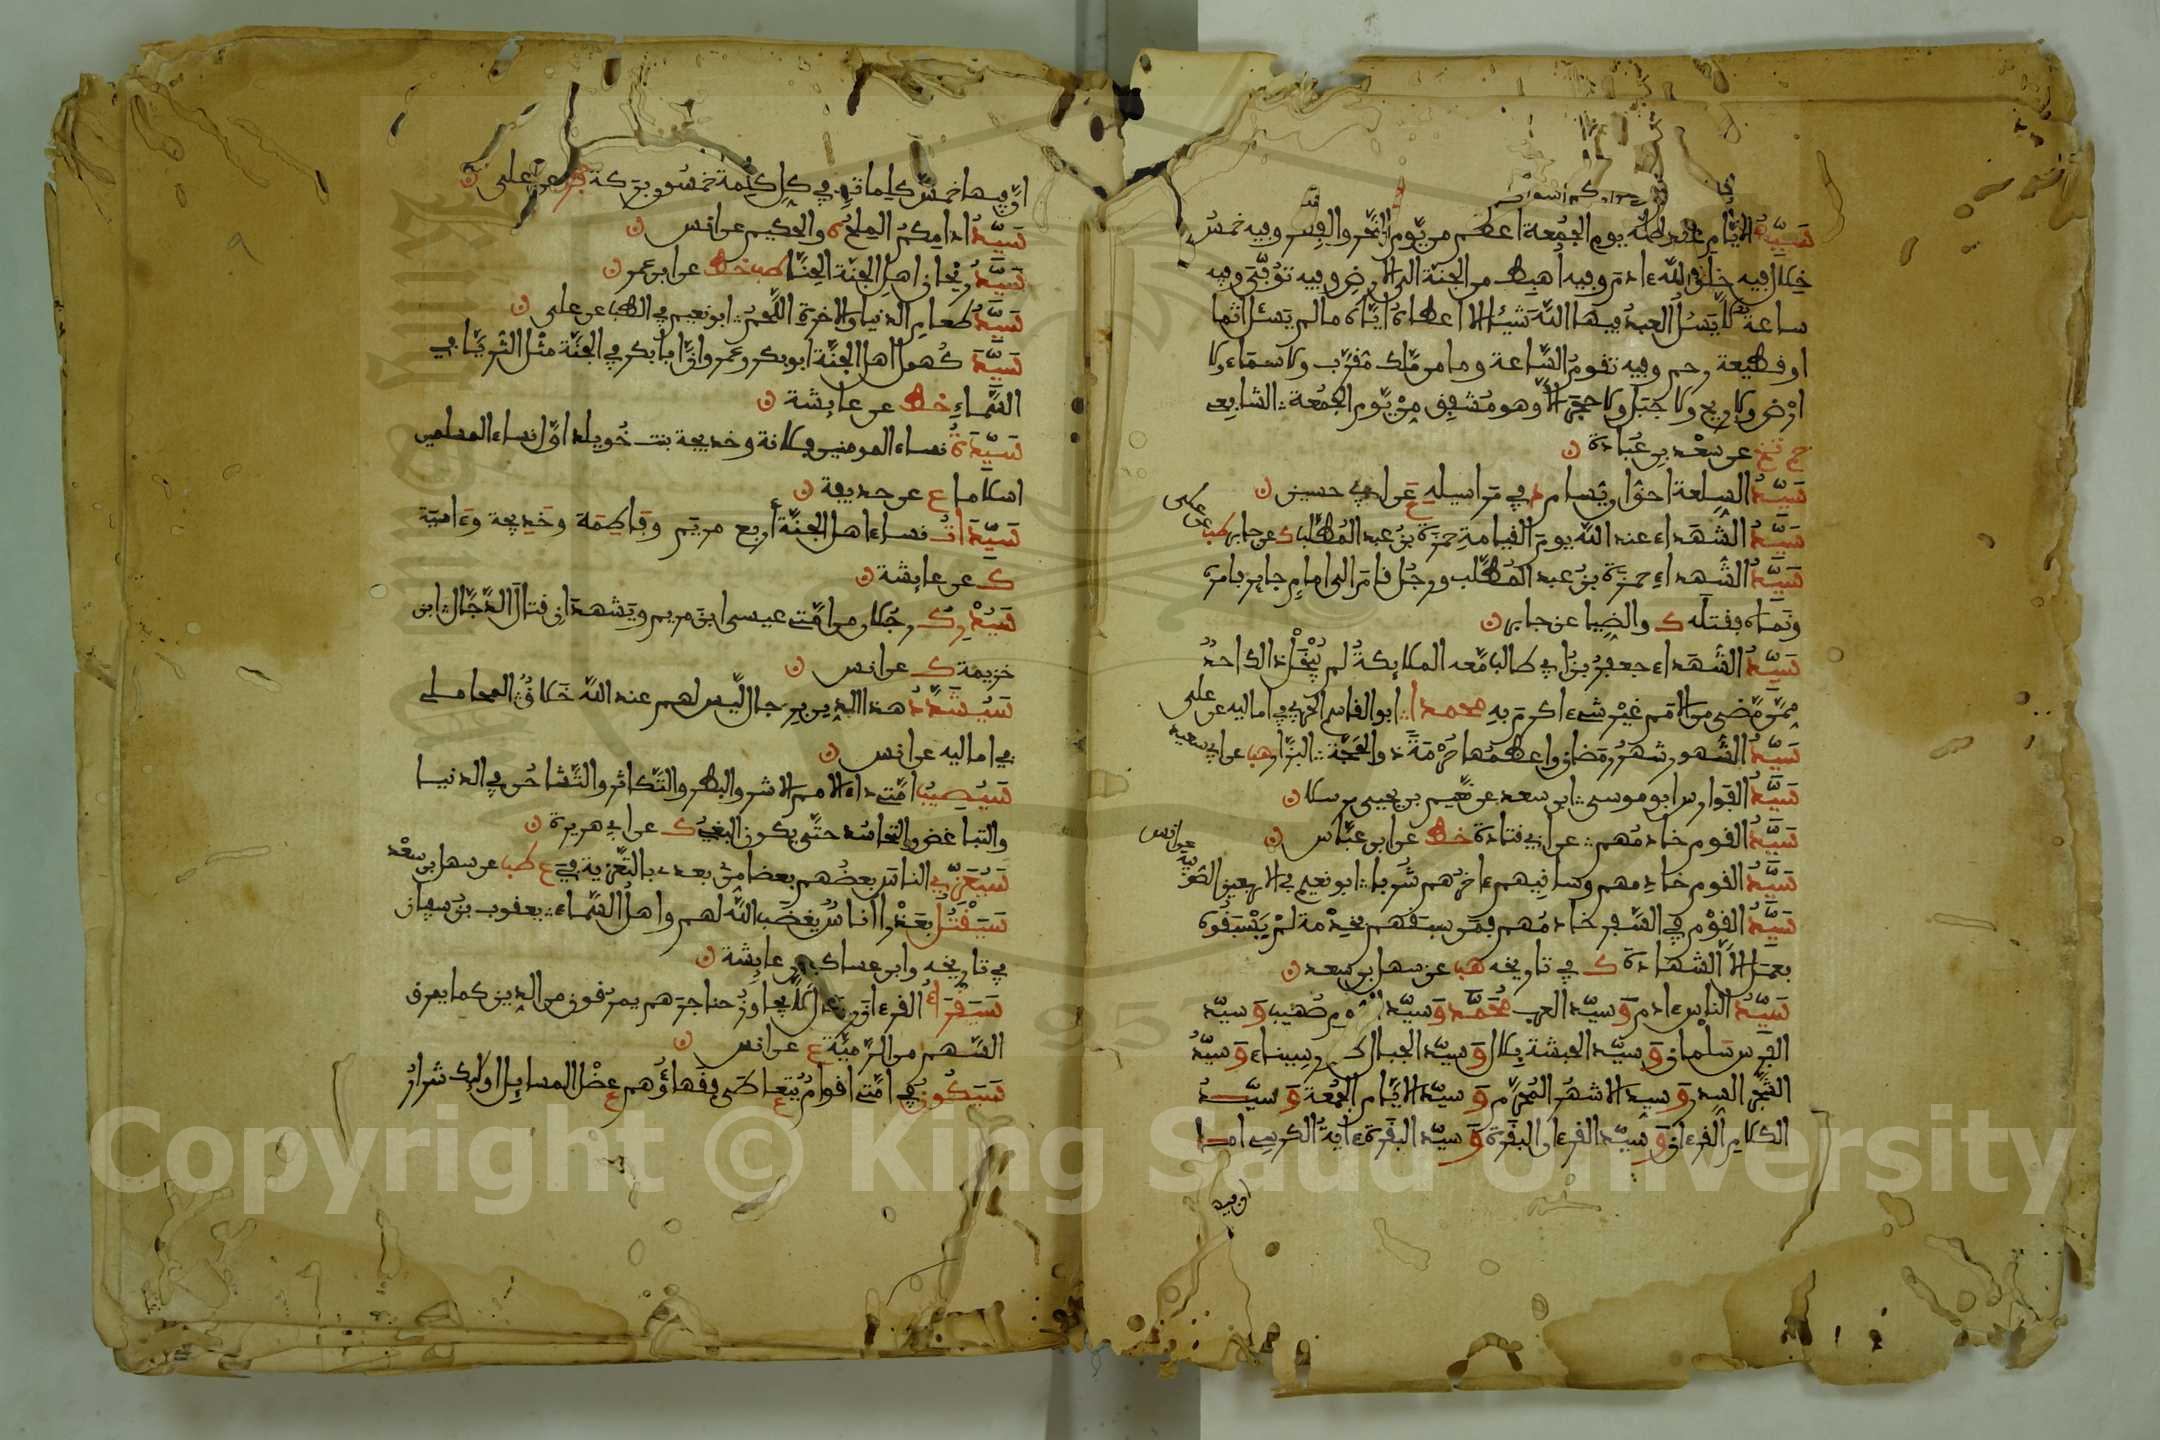 سَيِّدُ الايَّامِ عند الله يوم الجُمُعة اعظم من يَّوم النَّحْر والفِطر وفيه خمسُ
خِلال فيه خلق الله ءادمَ وفيه أُهبِط من الجنّة الى الارضِ وفيه تُوُفّيَ وفيه
ساعة لّا يَسْـَٔلُ العبدُ فيها اللهَ شيئا الا اعطاهُ ايّاهُ مالم يَسْـَٔل اثما
او قطيعة رحم وفيه تقومُ السَّاعة وما من مَّلَك مُّقرّب ولا سماء ولا
ارْض ولا ريح ولا جَبَل ولا حجَر الّا وهو مُشفِق مِنْ يَّوم الجُمُعة الشافعي
حم تخ عن سعْد بن عُبادة
سَيِّدُ السِلعة احقُّ ان يُسام د في مَراسيلهِ عن ابي حسين
سَيِّدُ الشُّهَداء عند الله يومَ القيامةِ حمزة بنُ عبد المُطَّلب ك عن جابر طب عن على
سَيِّدُ الشُّهداءِ حمزة بنُ عبد المُطَّلب ورجُل قامَ الى امامٍ جابر فامرهُ
ونَهاهُ فقتلَه ك والضِّيا عن جابر
سَيِّدُ الشُّهَداء جعفرُ بنُ ابي طالب مَّعه الملايكةُ لم يُنْحَلْ ذالك احدٌ
مِمَّن مَّضى من الامَم غيرُه شيء اكرمَ بهِ محمدا ابو القاسم الحرفي في اماليه عن على
سَيِّدُ الشُّهور شهرُ رمَضان واعظمُها حُرْمَةً ذو الحَجّة البزّار هب عن ابي سعيد
سَيِّدُ الفوارس ابو موسى ابن سعد عن نُّعَيم بن يحيى مرسلا
سَيِّدُ القوم خادمُهم عن ابي قتادة خط عن ابن عبَّاس
سَيِّدُ القوم خادِمهم وساقِيهم ءاخرُهم شُربا ابو نعيم في الاربعين الصُّوفية عن انس
سَيِّدُ القوْم في السَّفر خادمُهم فمَن سبَقهم بخِدْمة لم يَسْبقُوه
بعمَل الّا الشهَادة ك في تاريخه هب عن سهل بن سعد
سَيِّدُ الناس ءادم وَسيّد العرب مُحَمَّد وَسيّد الرُّوم صُهيب وَسيّد
الفُرس سَلمان وَسيّد الحبشة بِلال وَسيّد الجبال طور سِيناء وَسيّدُ
الشَّجر السدر وَسيد الاشهُر المُحرّم وَسيّد الايَّام الجُمُعة وَسيّدُ
الكلامِ القرءان وَسيّد القرءان البقَرة وَسيّد البقَرة ءايةُ الكرسى اما
ان فيه
او فيها خمسَ كلِمات في كل كلِمة خمسُون برَكة فر عن على
سَيِّدُ ادامِكمُ المِلحُ ه والحكيم عن انس
سَيِّدُ رَيْحان اهل الجنّة الحِنّا طب خط عن ابن عمر
سَيِّدُ طعامِ الدنيا والاخرة اللَّحْمُ ابو نعيم في الطب عن على
سَيِّدَا كُهول اهل الجنّة ابو بكر وعمر وانّ ابا بكر في الجنّة مثل الثُّريّا في
السَّماءِ خط عن عايشة
سَيِّدَةُ نساء المومنين فلانة وخديجة بنت خُويلد اوّل نساء المسلمين
اسلاما ع عن حذيفة
سَيِّدَاتُ نساء اهل الجنَّة اربع مريَم وفاطِمَة وخَديجة وءاسيَة
ك عن عايشة
سَيُدْرِكُ رجُلان من امّتي عيسى ابن مريم ويَشهدان قتال الدَّجَّال ابن
خزيمة ك عن انس
سَيُشَدَّدُ هذا الدين برجال لّيس لهم عند الله خَلاقٌ المحاملي
في اماليه عن انس
سَيُصيبُ امّتي داء الامم الاشر والبطر والتَّكاثر والتَّشاحُن في الدنيا
والتباغض والتحاسُد حتّى يكون البغيُ ك عن ابي هريرة
سَيُعَزّي الناسَ بعضُهم بعضا من بعدي بالتَّعزية بي ع طب عن سهل بن سعْد
سَيُقْتَلُ بعَذْرا اناسٌ يغضَب الله لهم واهلُ السَّماء يعقوب بنُ سفيان
في تاريخه وابن عساكر عن عايشة
سَيَقرَأُ القرءان رجال لا يجاوزُ حناجرَهم يمرُقون من الدين كما يمرق
السَّهم من الرَّميّة ع عن انس
سَيَكُونُ في امّتي اقوامٌ يتعاطَى فقهاؤُهم عضْل المسايل اولايك شرارُ